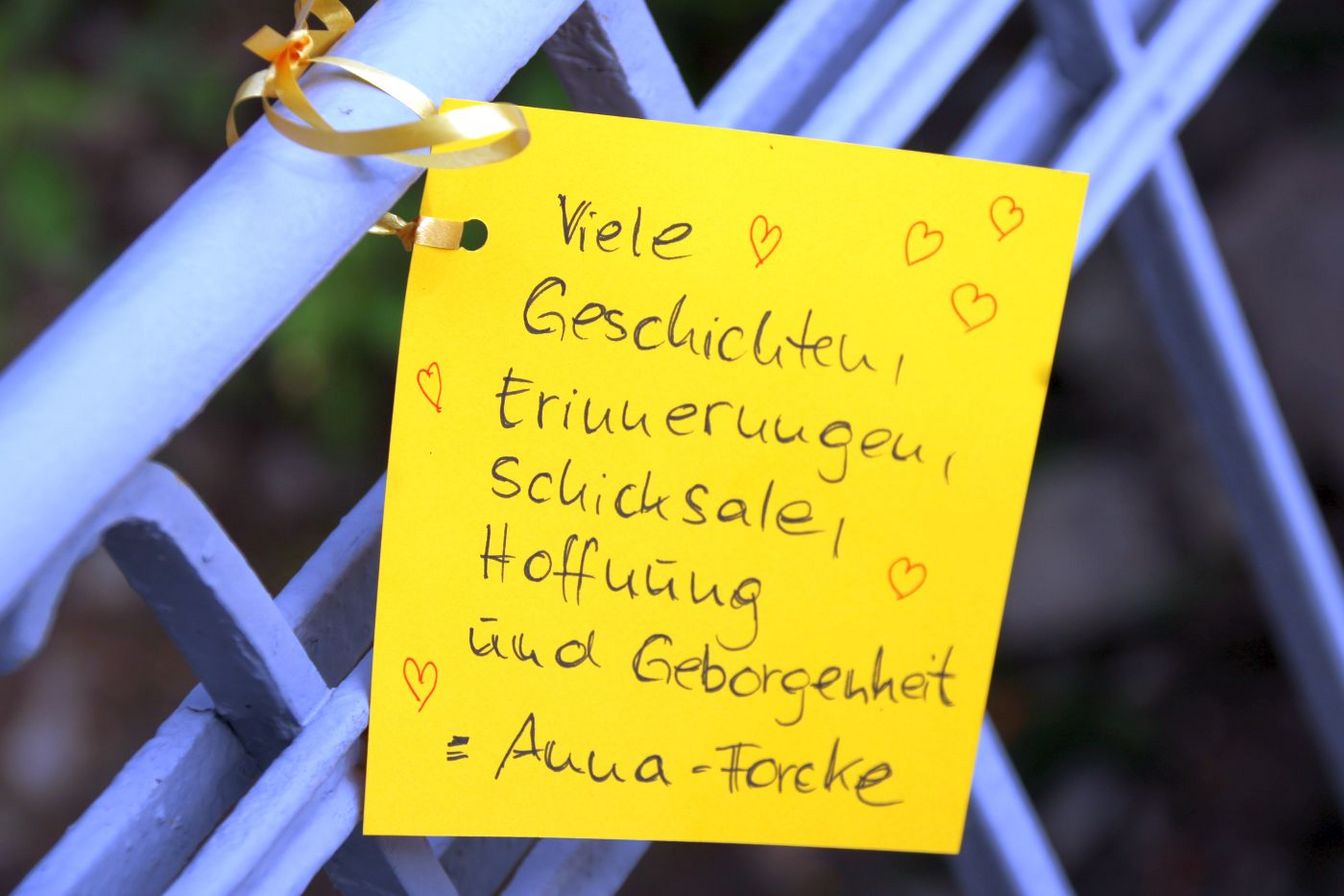 Viele
Geschichten,
Erinnerungen,
Schicksale,
Hoffnung
und Geborgenheit
= Anna-Forcke